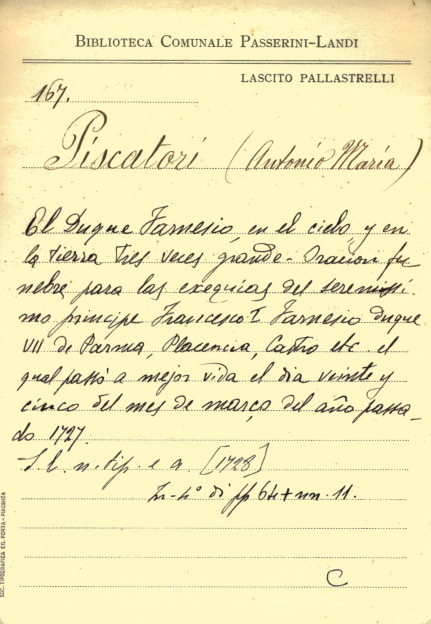 BIBLIOTECA COMUNALE PASSERINI-LANDI
LASCITO PALLASTRELLI
167.
Piscatori (Antonio Maria)
El Duque Farnesio, en el cielo y en
la tierra tres veces grande - Oracion fu-
nebre para las exequias del serenissi-
mo principe Francesco I Farnesio duque
VII de Parma, Placencia, Castro etc. el
qual passò a mejor vida el dia veinte y
cinco del mes de março del año passa-
do 1727.
S. l. n. tip. e a. [1728]
In-4° di pp 64 + nn. 11.
C
SOC. TIPOGRAFICA ED. PORTA - PIACENZA